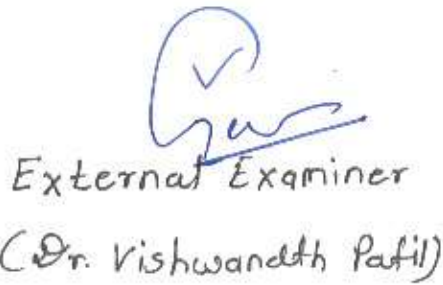 External Examiner
(Dr. Vishwanath Patil)